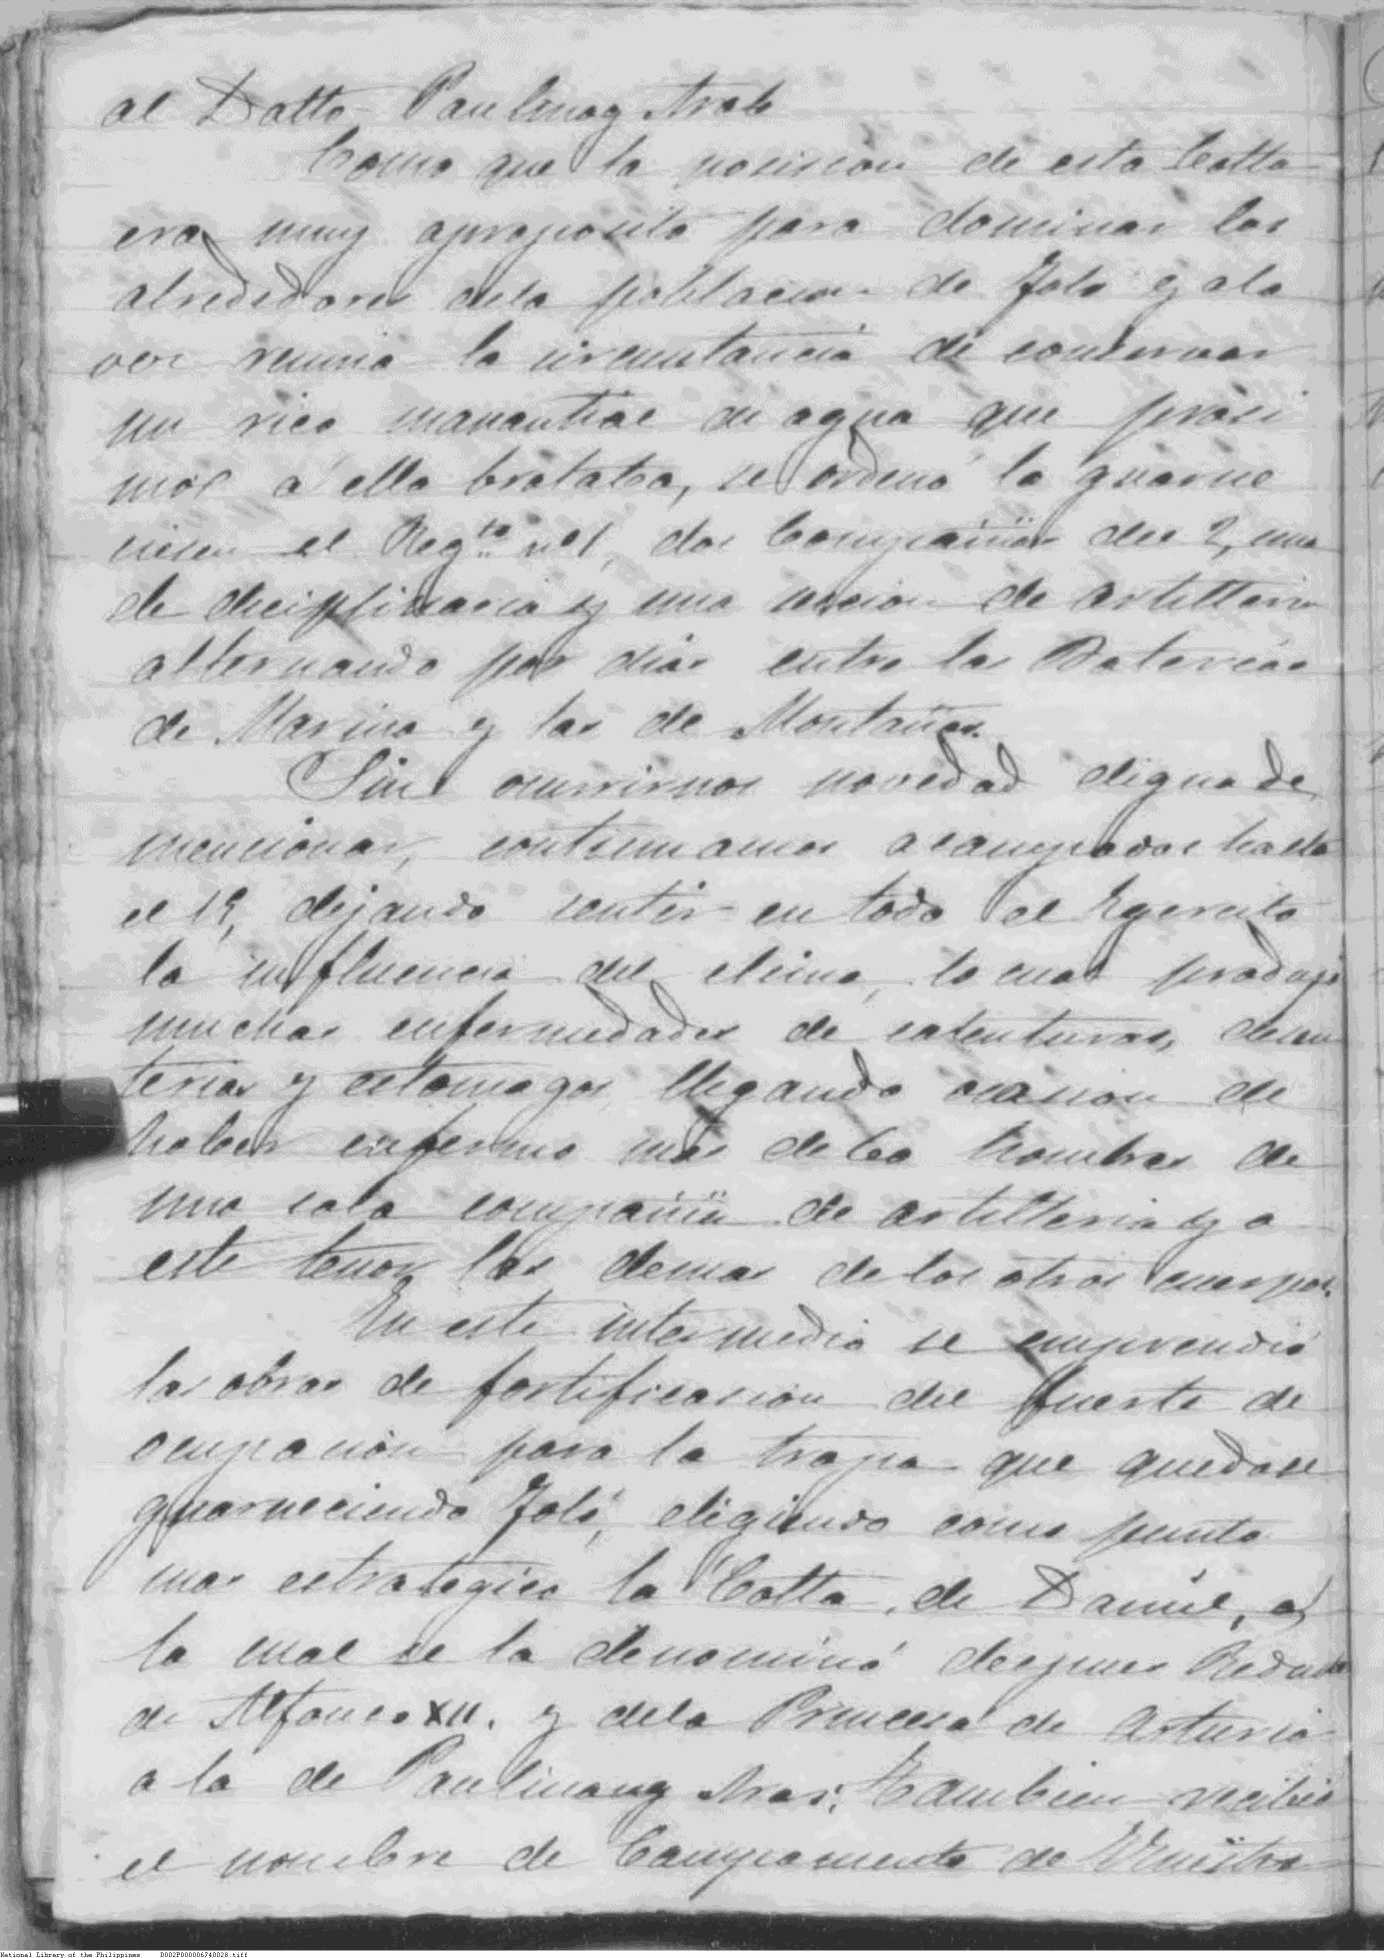 al Datto Paulinog Arab
Como que la posision de esta Cotta
era muy aproposito para dominar los
alrededores dela poblacion de Joló y ala
vez reunia la circunstancia de conservar
un rico manantial de agua que proxi
mos á ella brotaba, se ordenó la guarne
ciesen el Reg.to nº 1, dos Compañias del 2, una
de diciplinaria y una secion de artilleria
alternando por dias entre las Baterias
de Marina y las de Montañas.
Sin ocurrirnos novedad digna de
mencionar, continuamos acampados hasta
el 19, dejando sentir en todo el Egercito
la influencia del clima, lo cual produjo
muchas enfermedades de calenturas, desen
terias y estomagos, llegando ocasion de
haber enfermo mas de 60 hombres de
una sola compañia de artilleria y a
este tenor las demas de los otros cuerpos.
En este intermedio se emprendió
las obras de fortificasion del fuerte de
ocupacion para la tropa que quedase
guarneciendo Joló, eligiendo como punto
mas estrategico la Cotta de Daniel, á
la cual se la denominó despues Reducto
de Alfonso XII. y dela Princesa de Asturia
a la de Paulinang Aras; tambien recibió
el nombre de Campamento de Nuestra
National Library of the Philippines D002P000006740028.tiff